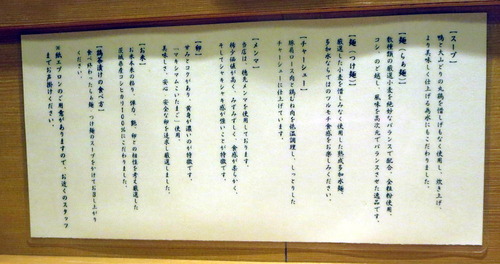 【スープ】
鴨と大山どりの丸鶏を惜しげもなく使用し、炊き上げ、
より美味しく仕上げる為水にもこだわりました。
【麺（らぁ麺）】
数種類の厳選小麦を絶妙なバランスで配合、全粒粉使用。
コシ、のど越し、風味を高次元でバランスさせた逸品です。
【麺（つけ麺）】
厳選した小麦を惜しみなく使用した熟成多加水麺。
多加水ならではのツルモチ食感をお楽しみください。
【チャーシュー】
豚肩ロース肉と鶏むね肉を低温調理し、しっとりした
チャーシューに仕上げています。
【メンマ】
当店は、穂先メンマを使用しております。
稀少価値が高く、みずみずしく、食感が柔らかく、
そしてシャキシャキ感が強いことが特徴です。
【卵】
甘みとコクがあり、黄身が濃いのが特徴です。
「マキシマムこいたまご」使用。
美味しさ、安心、安全な卵を追求し厳選しました。
【お米】
お米本来の粘り、弾力、艶、卵との相性を考え厳選した
茨城産コシヒカリ100%にこだわりました。
【鶏茶漬けの食べ方】
食べ終わったらぁ麺、つけ麺のスープをかけてお召し上がり
ください。
※紙エプロンのご用意がありますので、お近くのスタッフ
までお声掛けください。